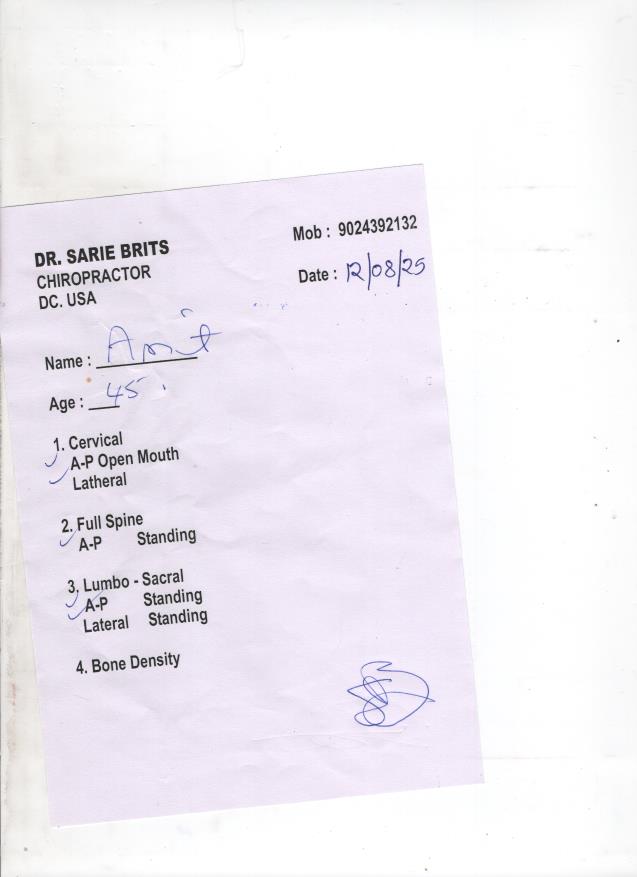 DR. SARIE BRITS
CHIROPRACTOR
DC. USA
Mob : 9024392132
Date : 12/08/25
Name : Amit
Age : 45
1. Cervical
A-P Open Mouth
Latheral
2. Full Spine
A-P Standing
3. Lumbo - Sacral
A-P Standing
Lateral Standing
4. Bone Density